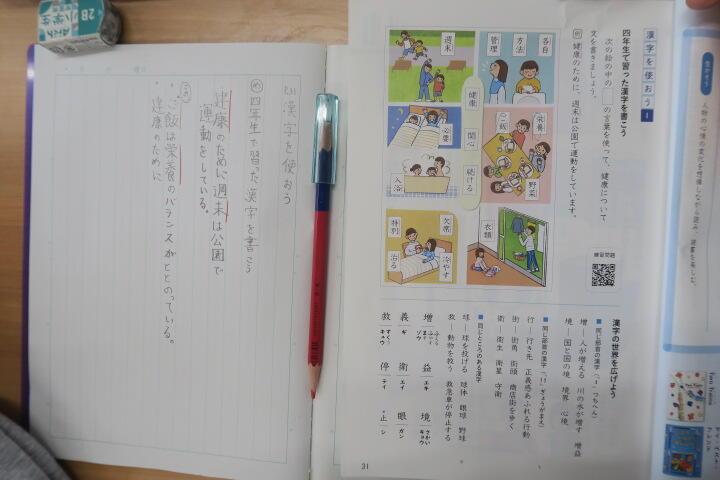 漢字を使おう 1
四年生で習った漢字を書こう
次の絵の中の の言葉を使って、健康について
文を書きましょう。
例 健康のために、週末は公園で運動をしています。
各自
方法
管理
週末
健康
関心
続ける
栄養
ご飯
野菜
必要
入浴
衣類
欠席
冷やす
特別
治る
練習問題
漢字の世界を広げよう
■同じ部首の漢字(「土」つちへん)
増―人が増える 川の水が増す 増益
境―国と国の境 境界 心境
■同じ部首の漢字(「行」ぎょうがまえ)
行―行き先 正義感あふれる行動
街―街角 街頭 商店街を歩く
衛―衛生 衛星 守衛
■同じところのある漢字
球―球を投げる 球体 眼球 野球
救―動物を救う 救急車が停止する
増 ふえる ます ゾウ
益 エキ
境 さかい キョウ
義 ギ
衛 エイ
眼 ガン
救 すくう キュウ
停 テイ
止 シ
31
生かそう
人物の心情の変化を想像しながら読み、
漢字を使おう
め 四年生で習った漢字を書こう
健康のために週末は公園で
運動をしている。
・ご飯は栄養のバランスがととのっている。
・健康のために
2B
小学生